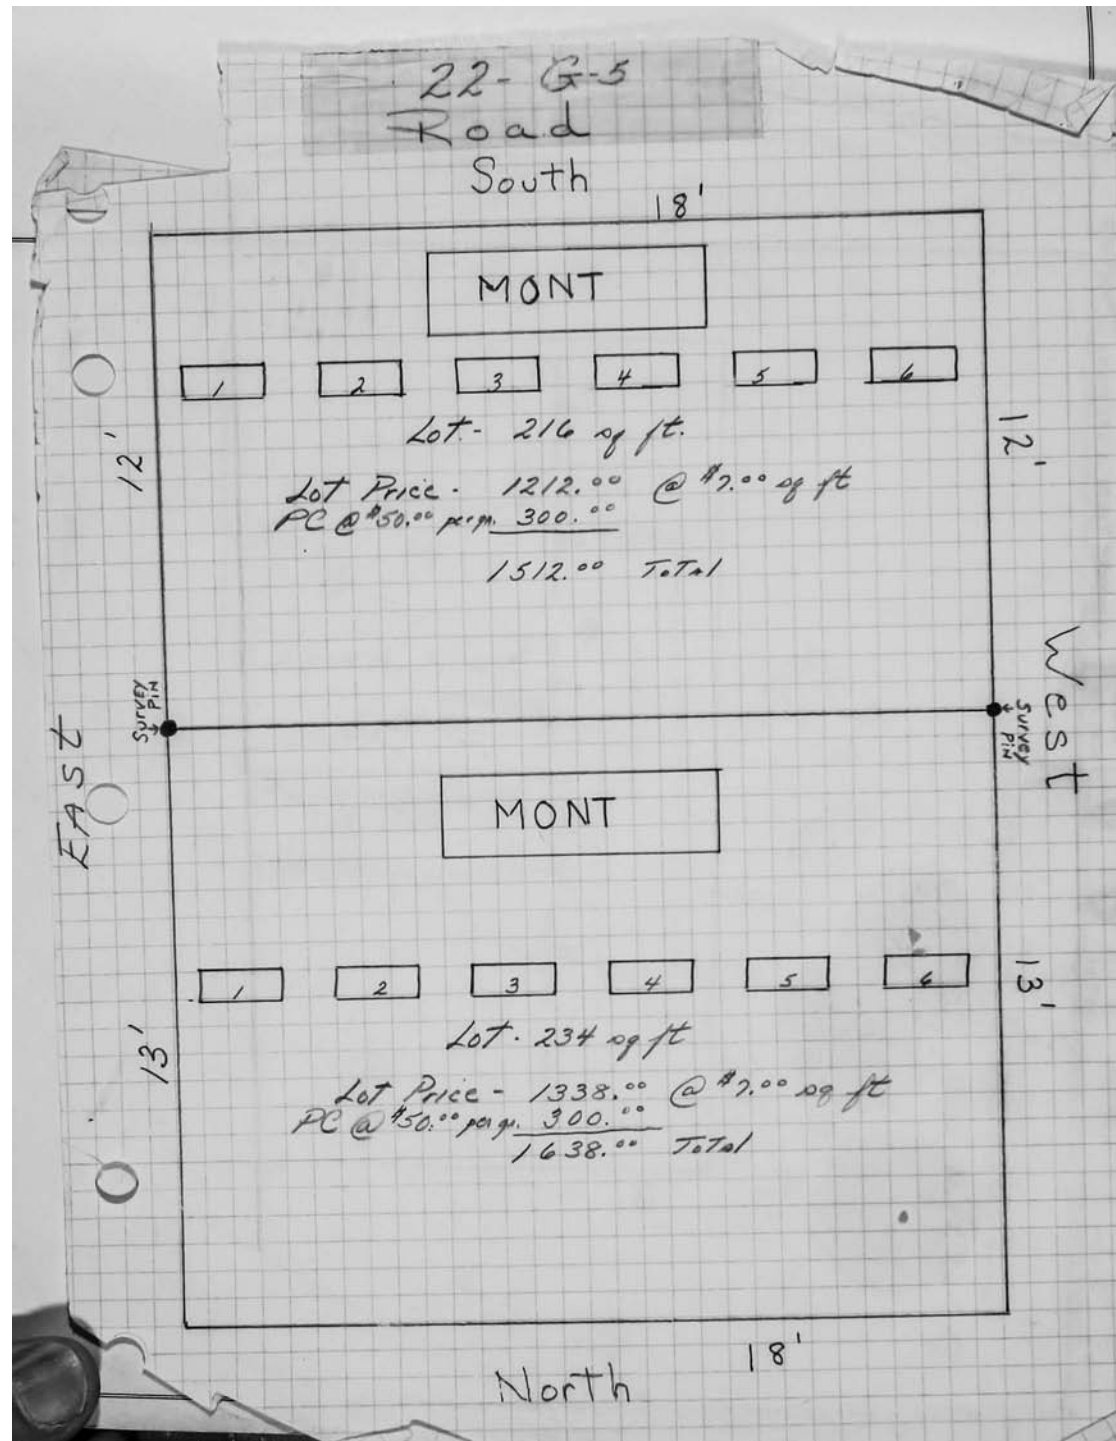 22-G-5
Road
South
18'
MONT
1 2 3 4 5 6
12'
12'
Lot- 216 sq ft.
Lot Price - 1212.00 @ $7.00 sq ft
PC @ $50.00 per gr. 300.00
1512.00 Total
SURVEY
PIN
SURVEY
PIN
East
West
MONT
1 2 3 4 5 6
13'
13'
Lot - 234 sq ft
Lot Price - 1338.00 @ $7.00 sq ft
PC @ $50.00 per gr. 300.00
1638.00 Total
18'
North